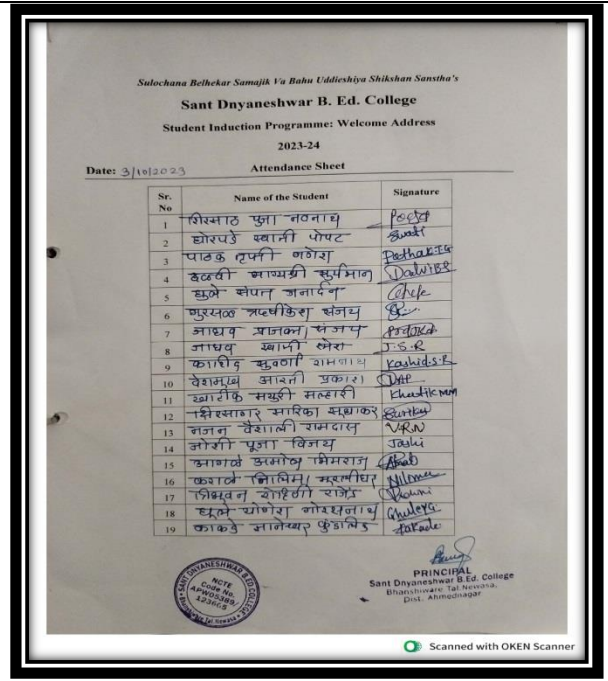 Sulochana Belhekar Samajik Va Bahu Uddieshiya Shikshan Sanstha's
Sant Dnyaneshwar B. Ed. College
Student Induction Programme: Welcome Address
2023-24
Date: 3/10/2023 Attendance Sheet
Sr. No Name of the Student Signature
1 शिरसाठ पुजा नवनाथ Pooja
2 घोरपडे स्वाती पोपट Swati
3 पाठक तृप्ती गणेश Pathak T.G
4 दळवी भाग्यश्री सुर्यभान Dalvi B.S
5 घुले संपत जनार्दन
6 गुरसळ ऋषीकेश संजय
7 जाधव प्राजक्ता संजय
8 जाधव स्वाती रमेश J.S.R
9 काशीद सुवर्णा रामनाथ Kashid.S.R
10 देशमुख आरती प्रकाश DAP
11 खाटीक मयुरी मल्हारी Khatik MM
12 क्षिरसागर सारिका सुधाकर Sarika
13 नजन वैशाली रामदास V.R.N
14 जोशी पूजा विजय Joshi
15 आगळे अमोल भिमराज
16 कराळे निलिमा मुरलीधर Nilima
17 त्रिभुवन रोहिणी राजेंद्र Rohini
18 घूले योगेश गोरक्षनाथ Ghule Y.G
19 काकडे ज्ञानेश्वर कुंडलिक Kakade
PRINCIPAL
Sant Dnyaneshwar B.Ed. College
Bhanshiware Tal.Newasa,
Dist. Ahmednagar
SANT DNYANESHWAR B.ED COLLEGE
NCTE
Code No.
APW05389/
123665
Scanned with OKEN Scanner